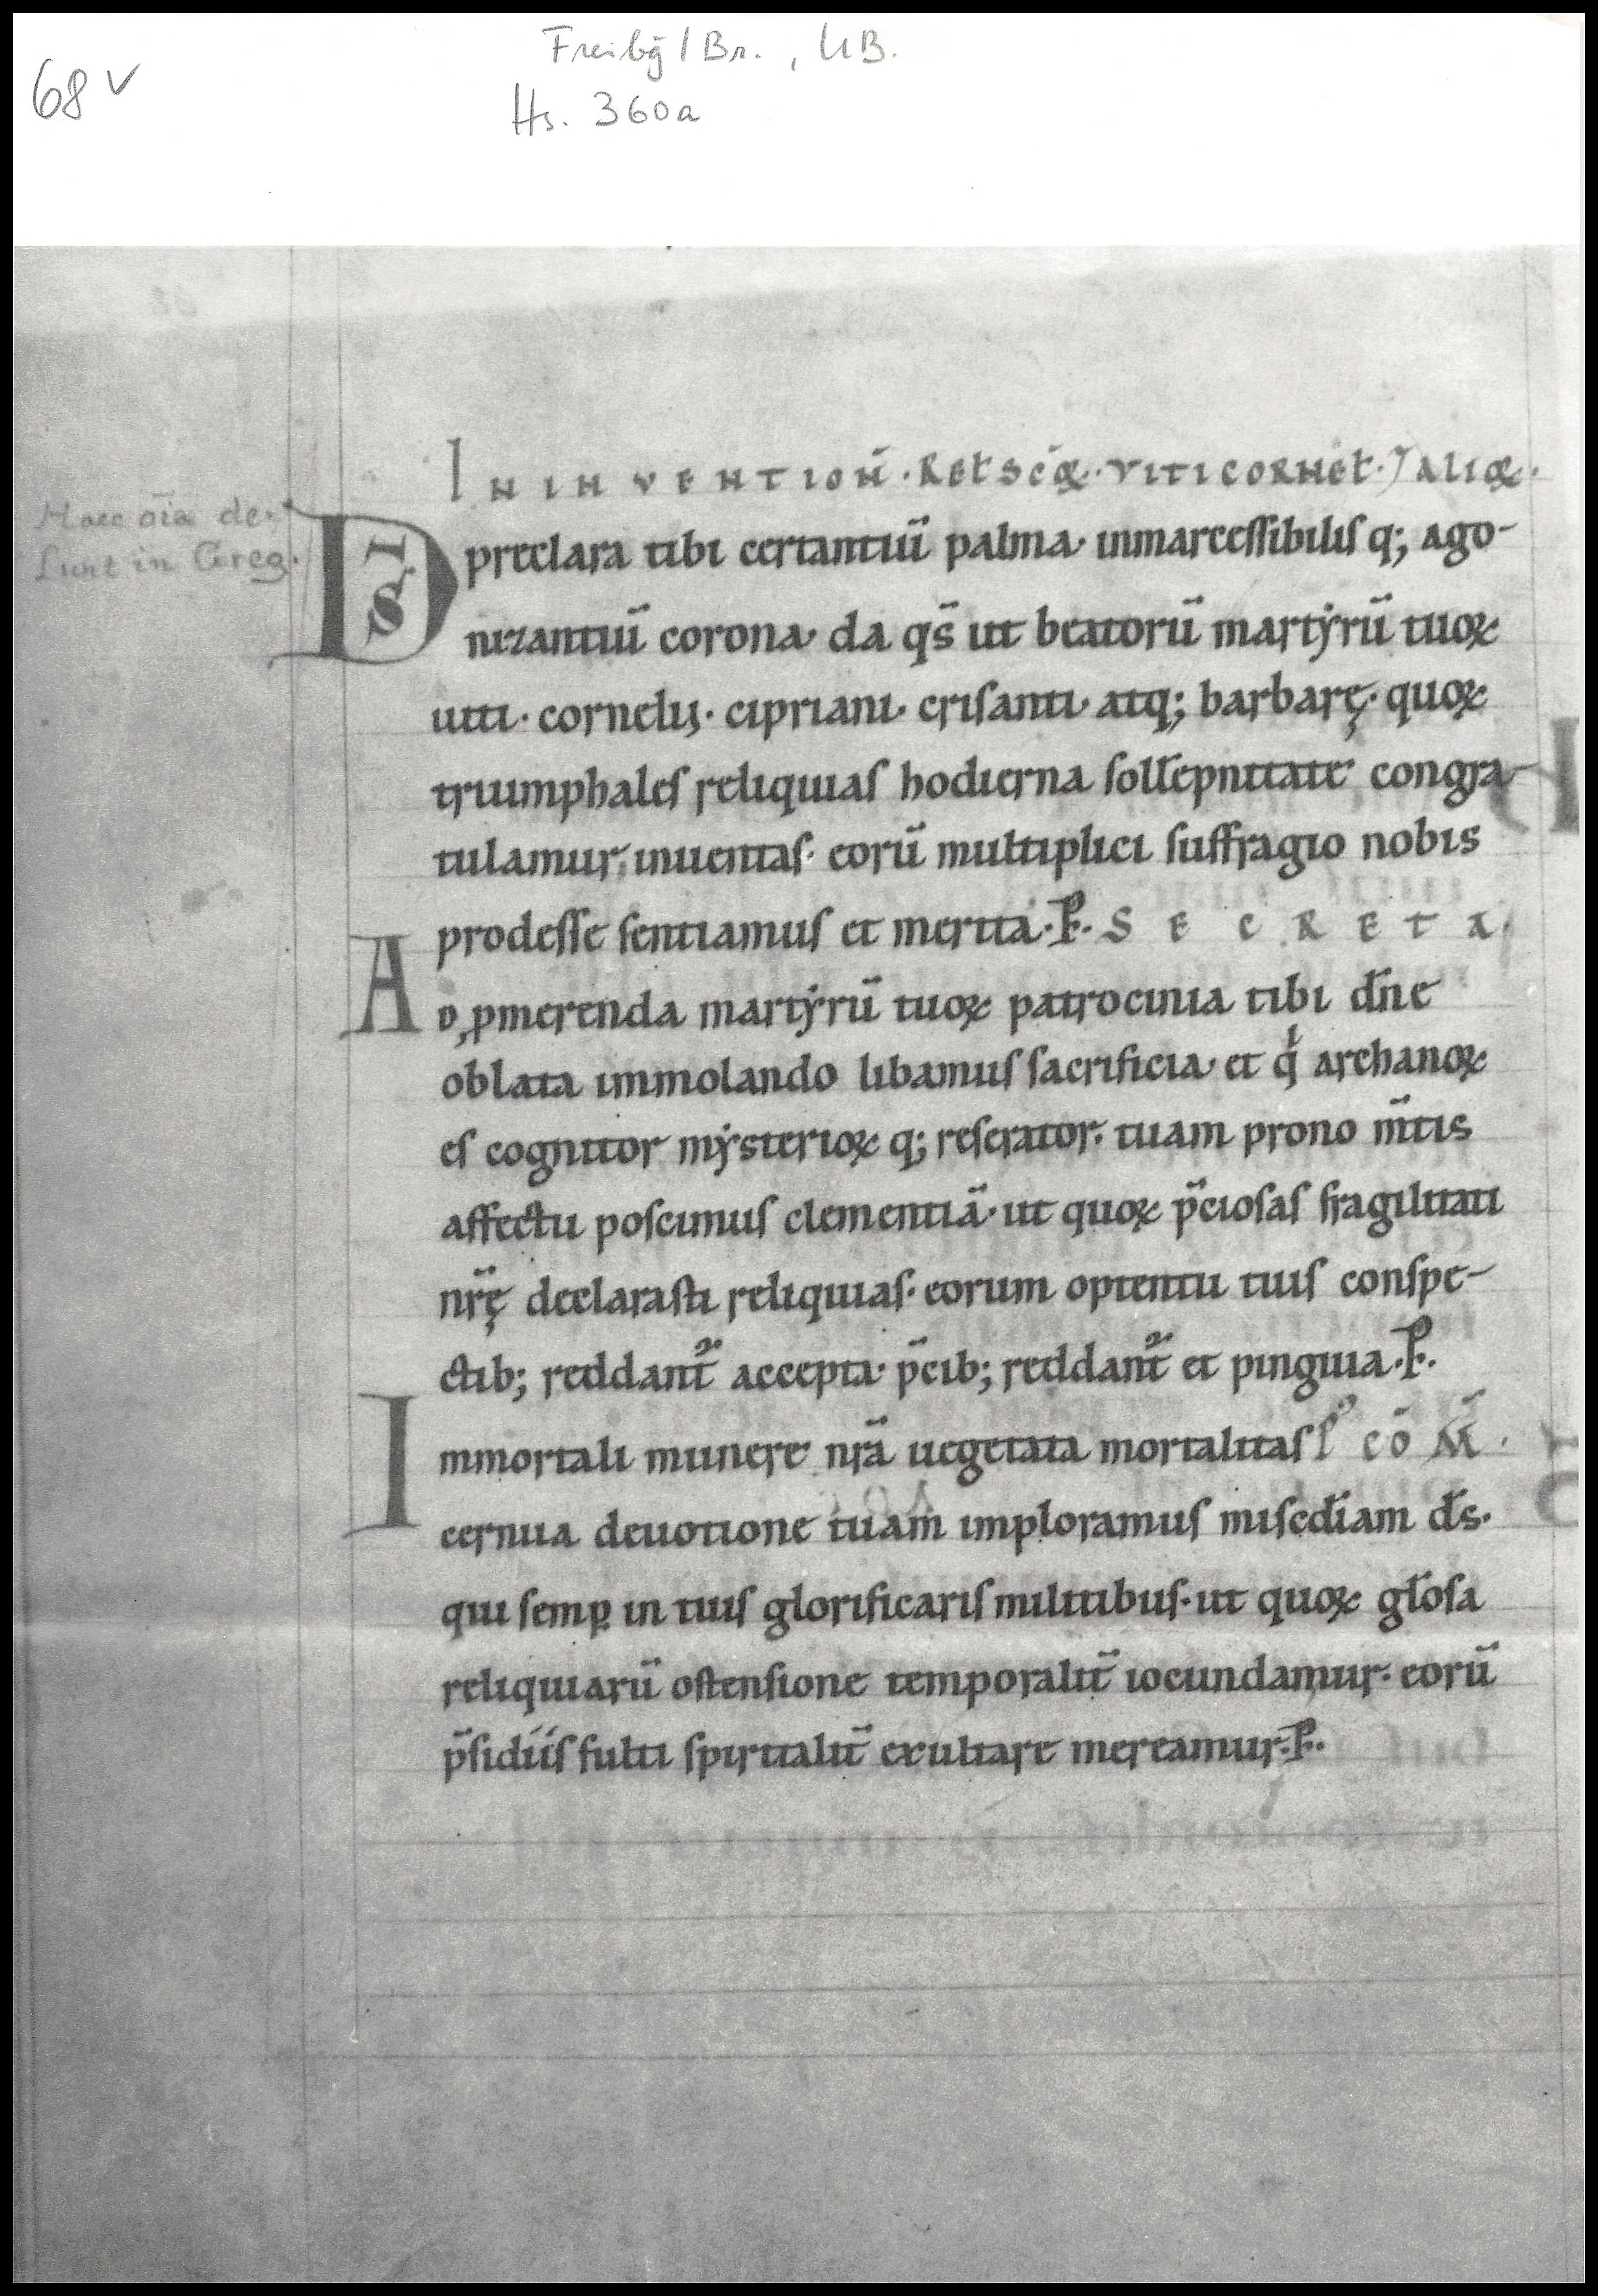 Freibg̅ / Br., UB.
68 v
Hs. 360a
IN INVENTION̄. REL SC̄Oꝝ. VITI CORNEL. ⁊ ALIOꝝ.
Haec oīa de-
sunt in Greg.
DS̄ preclara tibi certantiū palma· inmarcessibilisq; ago-
nizantiū corona· da qs̄ ut beatorū martẏrū tuoꝝ
uiti· cornelij· cipriani· crisanti· atq; barbarę· quoꝝ
triumphales reliquias hodierna sollepnitate congra-
tulamur inuentas· eorū multiplici suffragio nobis
prodesse sentiamus et merita·P. SECRETA.
AD ꝓmerenda martẏrū tuoꝝ patrocinia tibi dn̄e
oblata immolando libamus sacrificia· et qͥ archanoꝝ
es cognitor mẏsterioꝝ q; reserator· tuam prono m̄tis
affectu poscimus clementiā· ut quoꝝ p̄ciosas fragilitati
nr̄ę declarasti reliquias· eorum optentu tuis conspe-
ctib; reddant᷑ accepta· p̄cib; reddant᷑ et pinguia·P.
Immortali munere nr̄a uegetata mortalitas P᷒ CŌM̄.
cernua deuotione tuam imploramus misēdiam ds̄.
qui semꝑ in tuis glorificaris militibus· ut quoꝝ glōsa
reliquiarū ostensione temporalit̄ iocundamur· eorū
p̄sidiis fulti spiritalit̄ exultare mereamur·P.